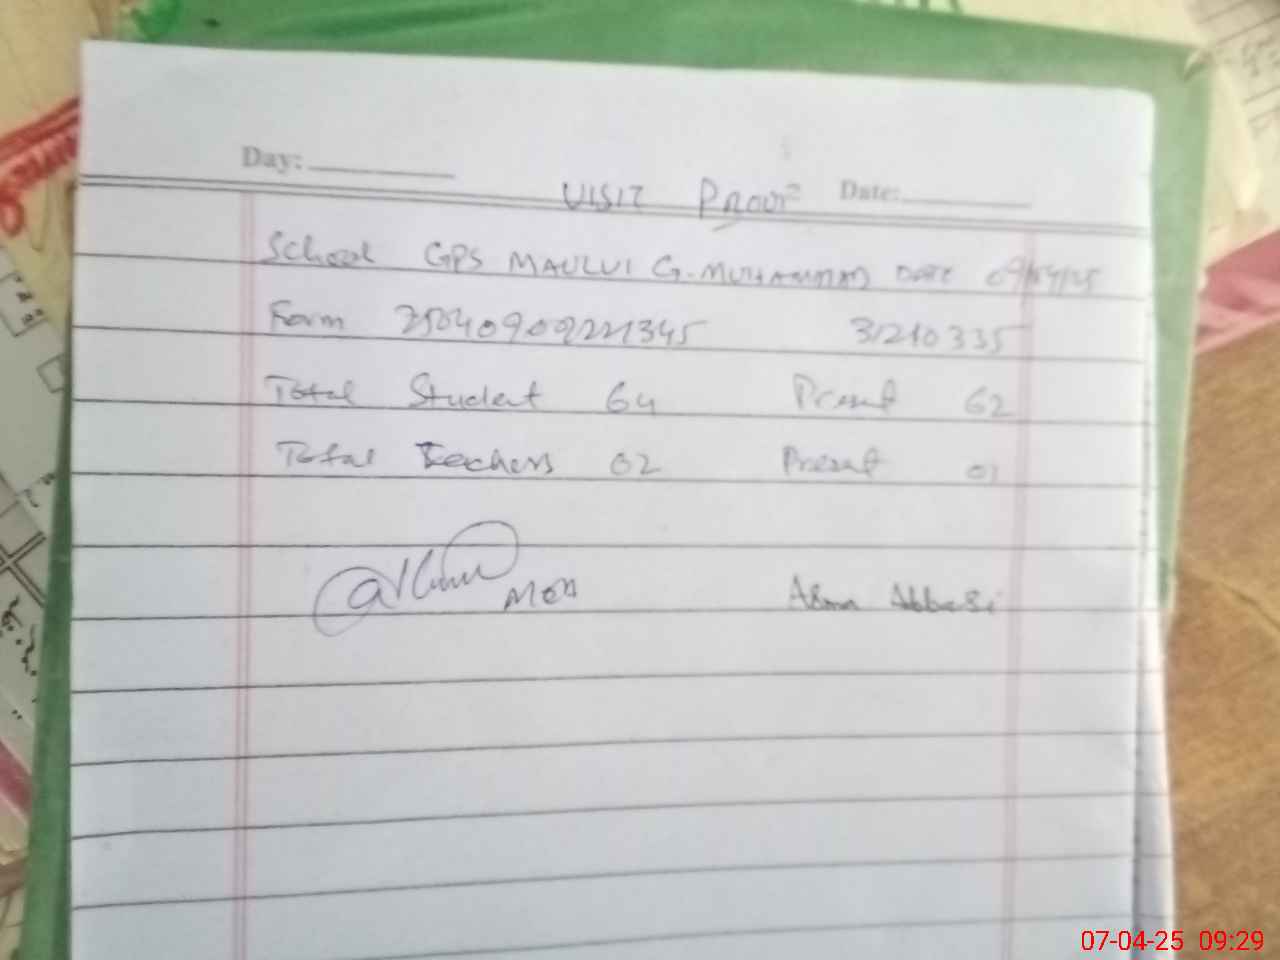 Day:
VISIT Proof Date:
School GPS MAULVI G. MUHAMMAD DATE 09/04/25
Form 250409092221345 31210335
Total Student 64 Present 62
Total Teachers 02 Present 01
MEA Asma Abbasi
07-04-25 09:29